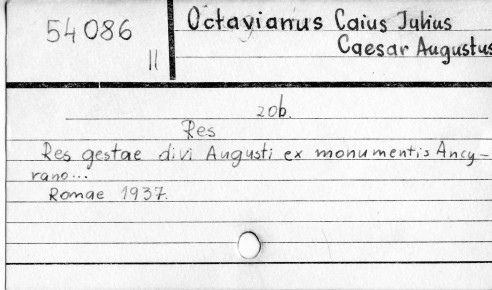 54086
II
Octavianus Caius Julius
Caesar Augustus
20b.
Res
Res gestae divi Augusti ex monumentis Ancy-
rano...
Romae 1937.